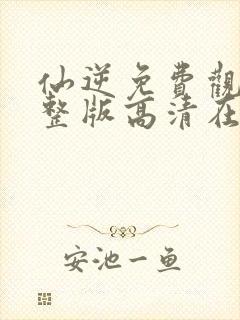 仙逆免費觀
整版高清在
安池一鱼